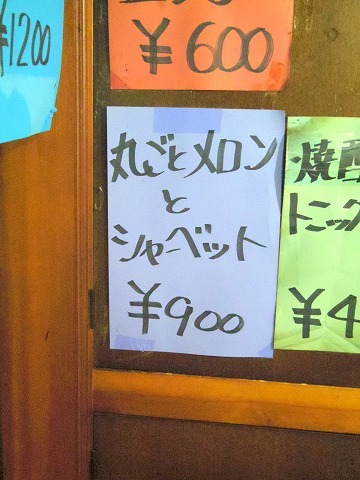 ¥1200
¥600
丸ごとメロン
と
シャーベット
¥900
焼酎
トニック
¥4